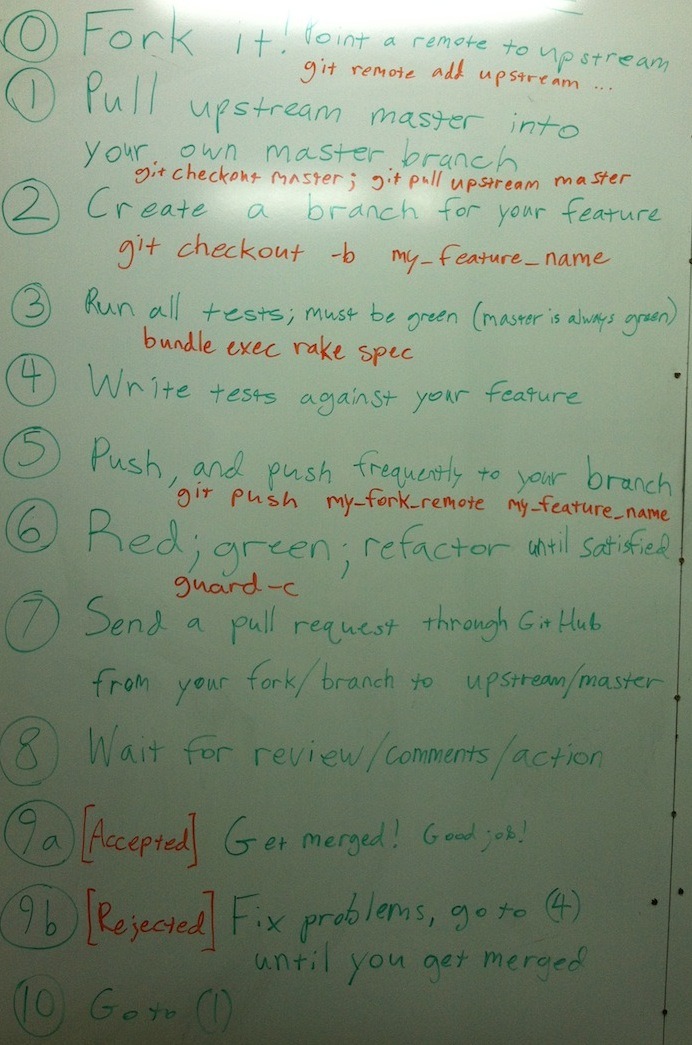 0 Fork it! Point a remote to upstream
git remote add upstream ...
1 Pull upstream master into
your own master branch
git checkout master; git pull upstream master
2 Create a branch for your feature
git checkout -b my_feature_name
3 Run all tests; must be green (master is always green)
bundle exec rake spec
4 Write tests against your feature
5 Push, and push frequently to your branch
git push my_fork_remote my_feature_name
6 Red; green; refactor until satisfied
guard -c
7 Send a pull request through GitHub
from your fork/branch to upstream/master
8 Wait for review/comments/action
9a [Accepted] Get merged! Good job!
9b [Rejected] Fix problems, go to (4)
until you get merged
10 Go to (1)